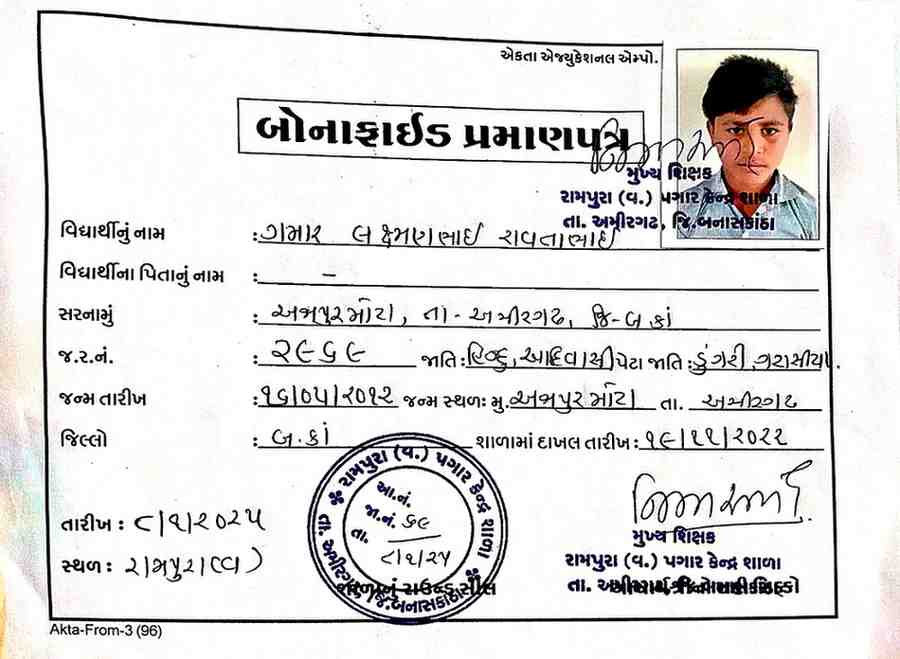 એકતા એજ્યુકેશનલ એમ્પો.
બોનાફાઈડ પ્રમાણપત્ર
મુખ્ય શિક્ષક
રામપુરા (વ.) પગાર કેન્દ્ર શાળા
તા. અમીરગઢ, જિ.બનાસકાંઠા
વિદ્યાર્થીનું નામ : ગમાર લક્ષ્મણભાઈ રાવતાભાઈ
વિદ્યાર્થીના પિતાનું નામ : –
સરનામું : અજાપુરમોટા, તા - અમીરગઢ, જિ - બ.કાં
જ.ર.નં. : ૨૯૬૯ જાતિ : હિન્દુ, આદિવાસી પેટા જાતિ : ડુંગરી ગરાસીયા.
જન્મ તારીખ : ૧૬/૦૫/૨૦૧૨ જન્મ સ્થળ: મુ. અજાપુરમોટા તા. અમીરગઢ
જિલ્લો : બ.કાં શાળામાં દાખલ તારીખ : ૧૯/૧૧/૨૦૨૨
તારીખ : ૮/૧/૨૦૨૫
સ્થળ : રામપુરા(વ)
રામપુરા (વ.) પગાર કેન્દ્ર શાળા
તા. અમીરગઢ, જિ.બનાસકાંઠા
આ.નં.
જા.નં. ૬૯
તા. ૮/૧/૨૫
શાળાનું રાઉન્ડ સીલ
મુખ્ય શિક્ષક
રામપુરા (વ.) પગાર કેન્દ્ર શાળા
તા.
Akta-From-3 (96)